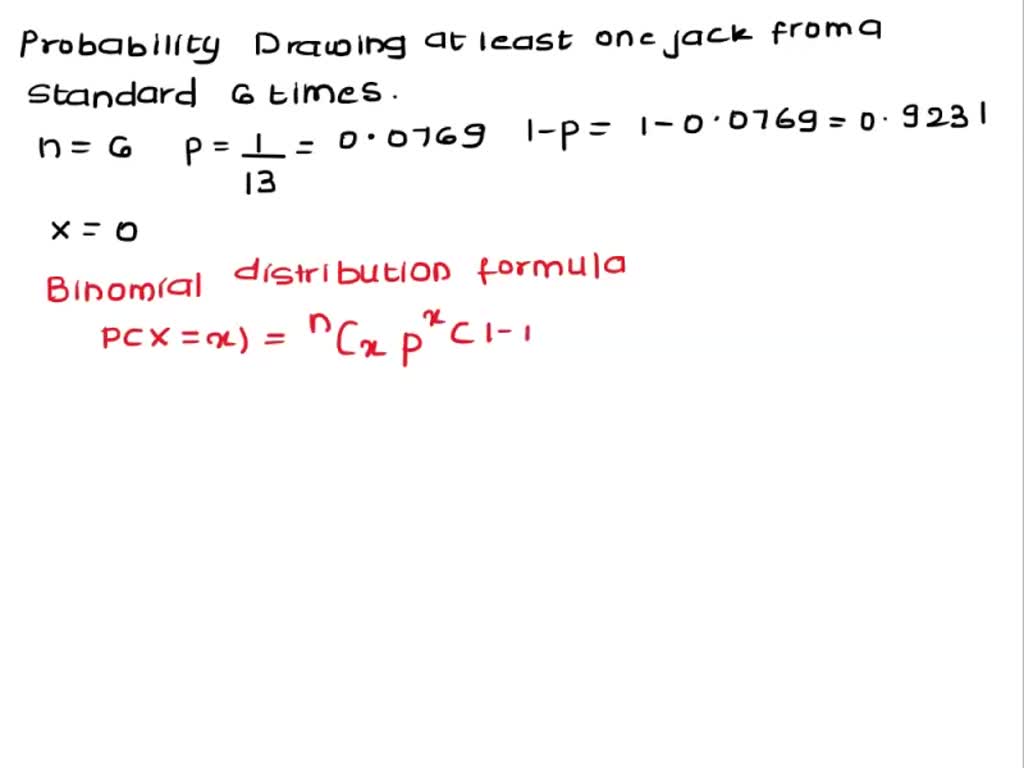 Probability Drawing at least one jack from a
Standard 6 times.
n = 6 p = 1/13 = 0.0769 1-p = 1-0.0769 = 0.9231
x = 0
Binomial distribution formula
P(X = x) = nCx p^x (1-